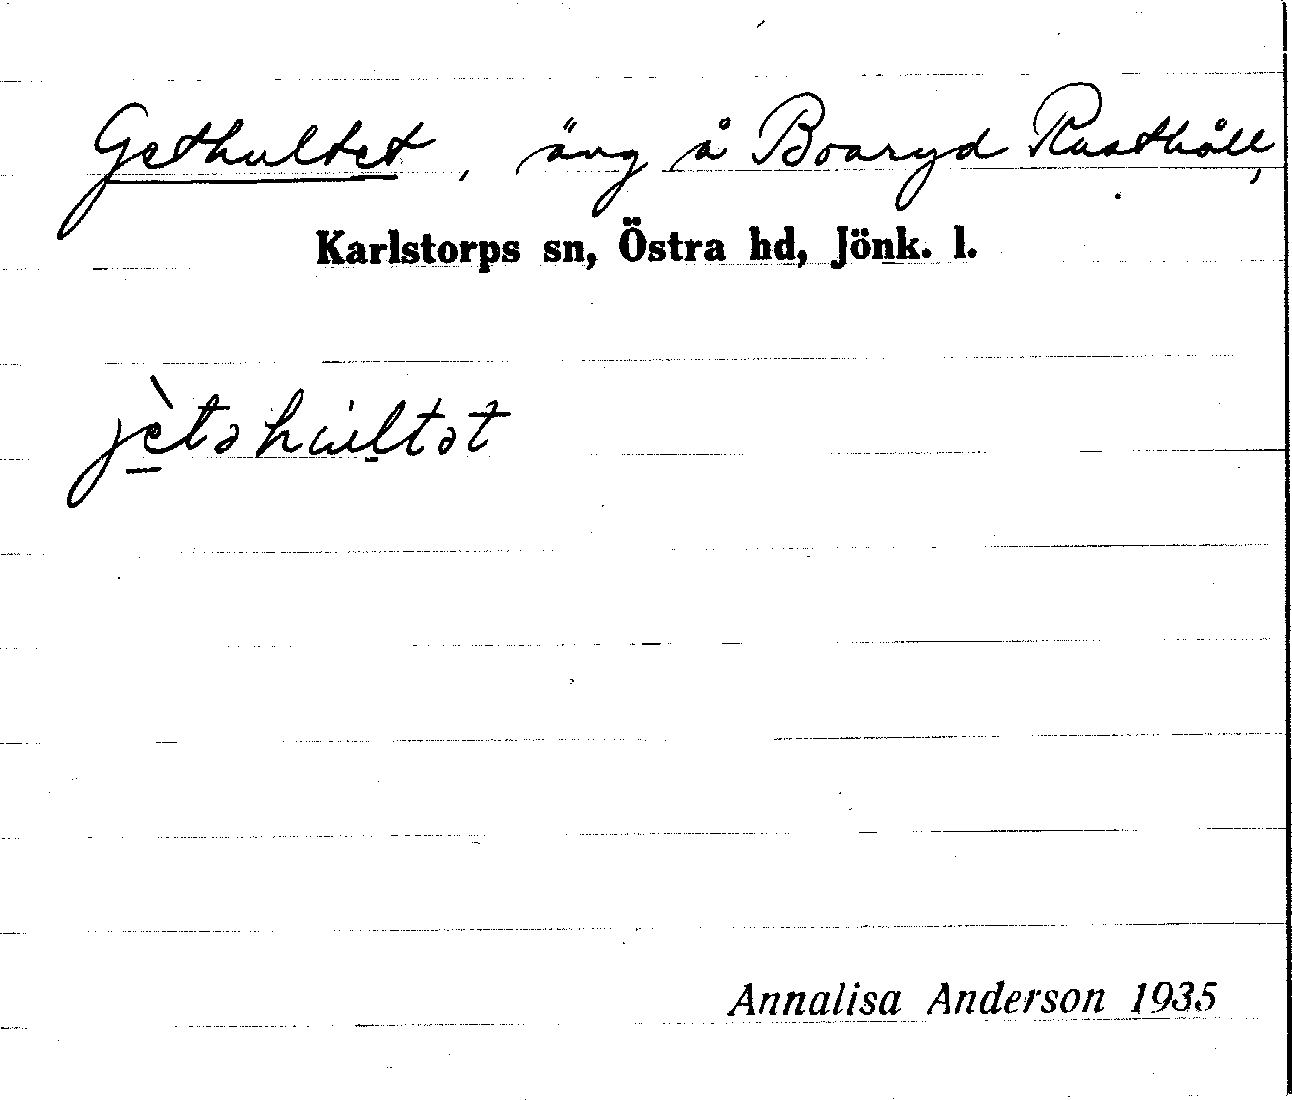 Gethultet, äng å Boaryd Rusthåll,
Karlstorps sn, Östra hd, Jönk. l.
jètəhu̇ltət
Annalisa Anderson 1935